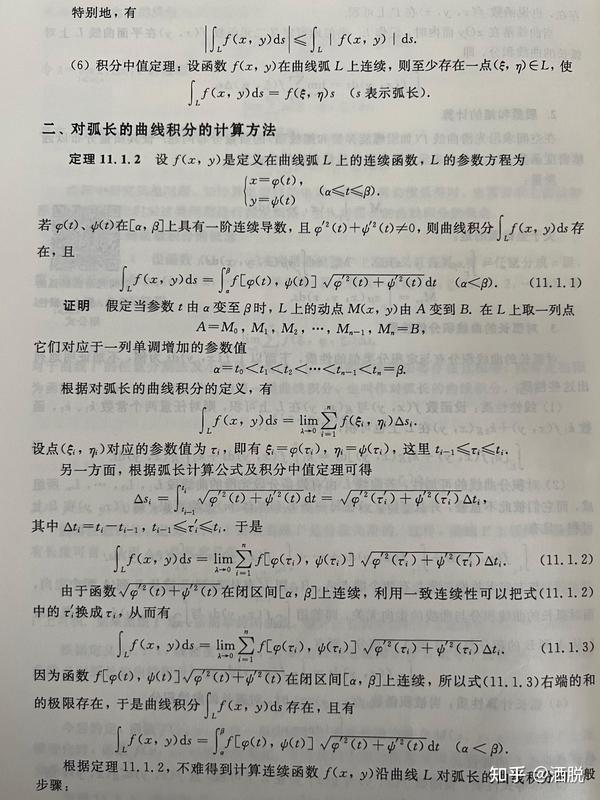 特别地,有
|∫_L f(x, y)ds| ≤ ∫_L | f(x, y) | ds.
(6) 积分中值定理:设函数 f(x, y)在曲线弧 L 上连续,则至少存在一点(ξ, η)∈L, 使
∫_L f(x, y)ds = f(ξ, η)s (s 表示弧长).
二、对弧长的曲线积分的计算方法
定理 11.1.2 设 f(x, y)是定义在曲线弧 L 上的连续函数, L 的参数方程为
{x=φ(t),
y=ψ(t) (α≤t≤β).
若 φ(t)、ψ(t)在[α, β]上具有一阶连续导数,且 φ′²(t)+ψ′²(t)≠0, 则曲线积分∫_L f(x, y)ds 存
在,且
∫_L f(x, y)ds = ∫_α^β f[φ(t), ψ(t)] √(φ′²(t)+ψ′²(t)) dt (α<β). (11.1.1)
证明 假定当参数 t 由 α 变至 β 时, L 上的动点 M(x, y)由 A 变到 B. 在 L 上取一列点
A=M₀, M₁, M₂, …, Mₙ₋₁, Mₙ=B,
它们对应于一列单调增加的参数值
α=t₀<t₁<t₂<…<tₙ₋₁<tₙ=β.
根据对弧长的曲线积分的定义,有
∫_L f(x, y)ds = lim_{λ→0} ∑_{i=1}^n f(ξᵢ, ηᵢ)Δsᵢ.
设点(ξᵢ, ηᵢ)对应的参数值为 τᵢ, 即有 ξᵢ=φ(τᵢ), ηᵢ=ψ(τᵢ), 这里 tᵢ₋₁≤τᵢ≤tᵢ.
另一方面,根据弧长计算公式及积分中值定理可得
Δsᵢ = ∫_{tᵢ₋₁}^{tᵢ} √(φ′²(t)+ψ′²(t)) dt = √(φ′²(τᵢ′)+ψ′²(τᵢ′)) Δtᵢ,
其中 Δtᵢ=tᵢ−tᵢ₋₁, tᵢ₋₁≤τᵢ′≤tᵢ. 于是
∫_L f(x, y)ds = lim_{λ→0} ∑_{i=1}^n f[φ(τᵢ), ψ(τᵢ)] √(φ′²(τᵢ′)+ψ′²(τᵢ′)) Δtᵢ. (11.1.2)
由于函数√(φ′²(t)+ψ′²(t)) 在闭区间[α, β]上连续,利用一致连续性可以把式(11.1.2)
中的 τᵢ′换成 τᵢ, 从而有
∫_L f(x, y)ds = lim_{λ→0} ∑_{i=1}^n f[φ(τᵢ), ψ(τᵢ)] √(φ′²(τᵢ)+ψ′²(τᵢ)) Δtᵢ. (11.1.3)
因为函数 f[φ(t), ψ(t)]√(φ′²(t)+ψ′²(t)) 在闭区间[α, β]上连续,所以式(11.1.3)右端的和
的极限存在,于是曲线积分∫_L f(x, y)ds 存在,且有
∫_L f(x, y)ds = ∫_α^β f[φ(t), ψ(t)] √(φ′²(t)+ψ′²(t)) dt (α<β).
根据定理 11.1.2, 不难得到计算连续函数 f(x, y)沿曲线 L 对弧长的曲线积分的一般
步骤:
知乎 @洒脱